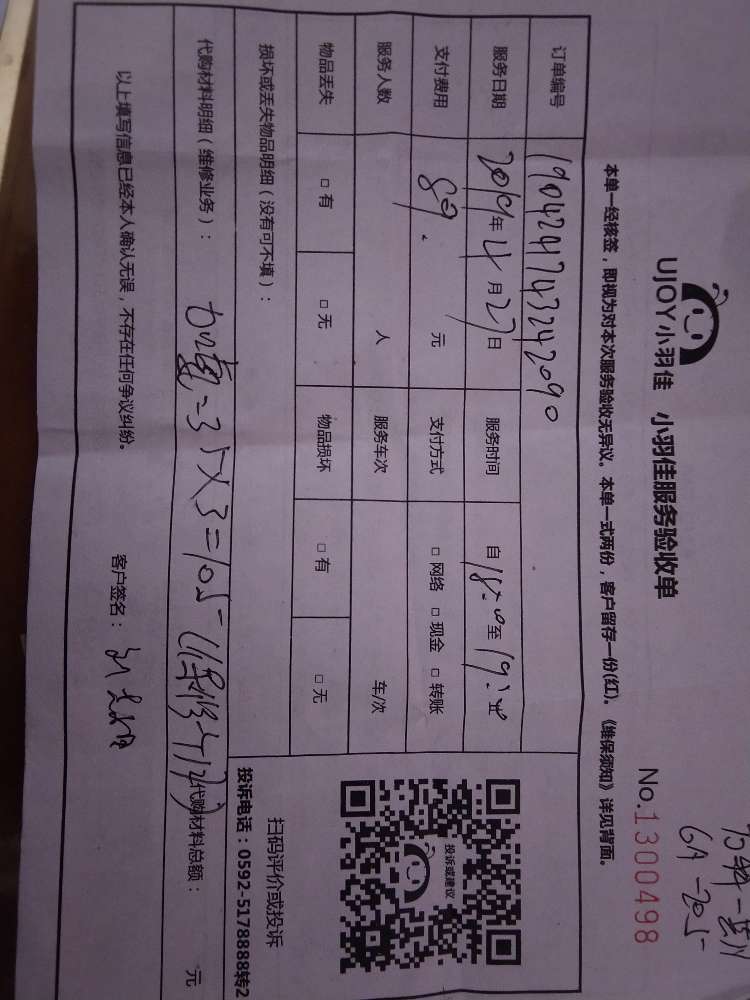 UJOY小羽佳 小羽佳服务验收单
No.1300498
本单一经核签，即视为对本次服务验收无异议。本单一式两份，客户留存一份(红)。《维保须知》详见背面。
订单编号 190424743242090
服务日期 2019年4月27日 服务时间 自18:00至19:30
支付费用 89. 元 支付方式 □ 网络 □ 现金 □ 转账
服务人数 人 服务车次 车/次
物品丢失 □ 有 □ 无 物品损坏 □ 有 □ 无
损坏或丢失物品明细（没有可不填）：
代购材料明细（维修业务）： 加氟=35×3=105 代购材料总额： 元
以上填写信息已经本人确认无误，不存在任何争议纠纷。 客户签名：
投诉或建议
扫码评价或投诉
投诉电话：0592-5178888转2